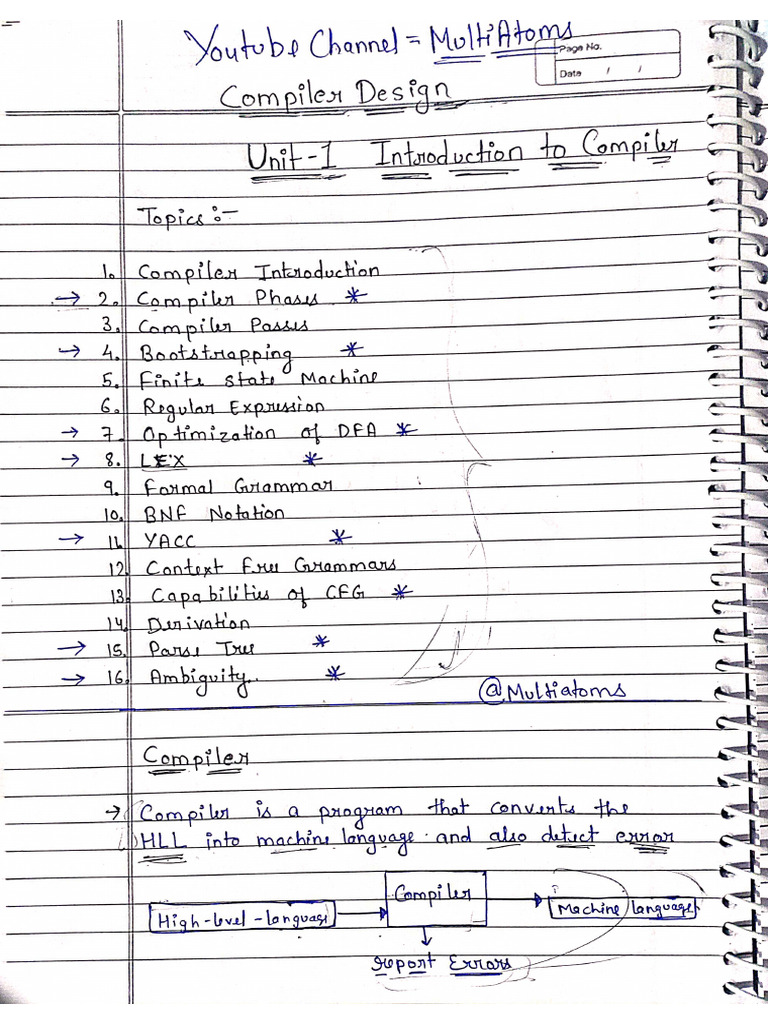 Youtube Channel = MultiAtoms
Page No.
Date / /
Compiler Design
Unit-1 Introduction to Compiler
Topics :-
1. Compiler Introduction
→ 2. Compiler Phases *
3. Compiler Passes
→ 4. Bootstrapping *
5. Finite state Machine
6. Regular Expression
→ 7. Optimization of DFA *
→ 8. LEX *
9. Formal Grammar
10. BNF Notation
→ 11. YACC *
12. Context Free Grammars
13. Capabilities of CFG *
14. Derivation
→ 15. Parse Tree *
→ 16. Ambiguity. *
@Multiatoms
Compiler
→ Compiler is a program that converts the
HLL into machine language and also detect error
Compiler
High-level-language
Machine language
report Errors